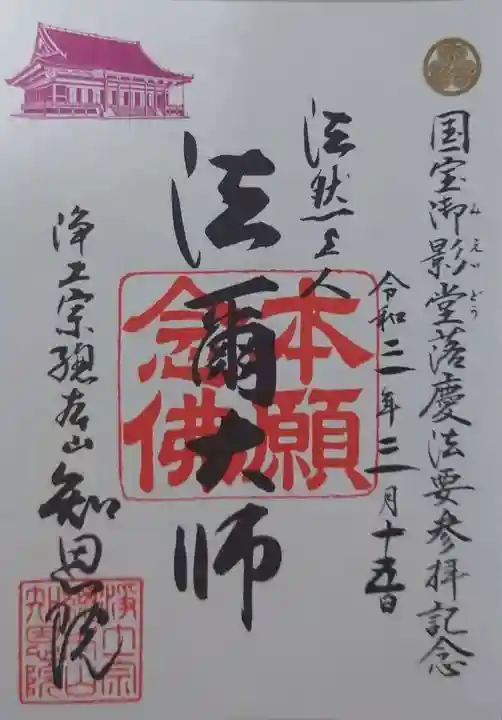 国宝御影堂落慶法要参拝記念
みえいどう
令和二年三月十五日
法然上人
法爾大師
本願念佛
浄土宗總本山知恩院
浄土宗總本山知恩院